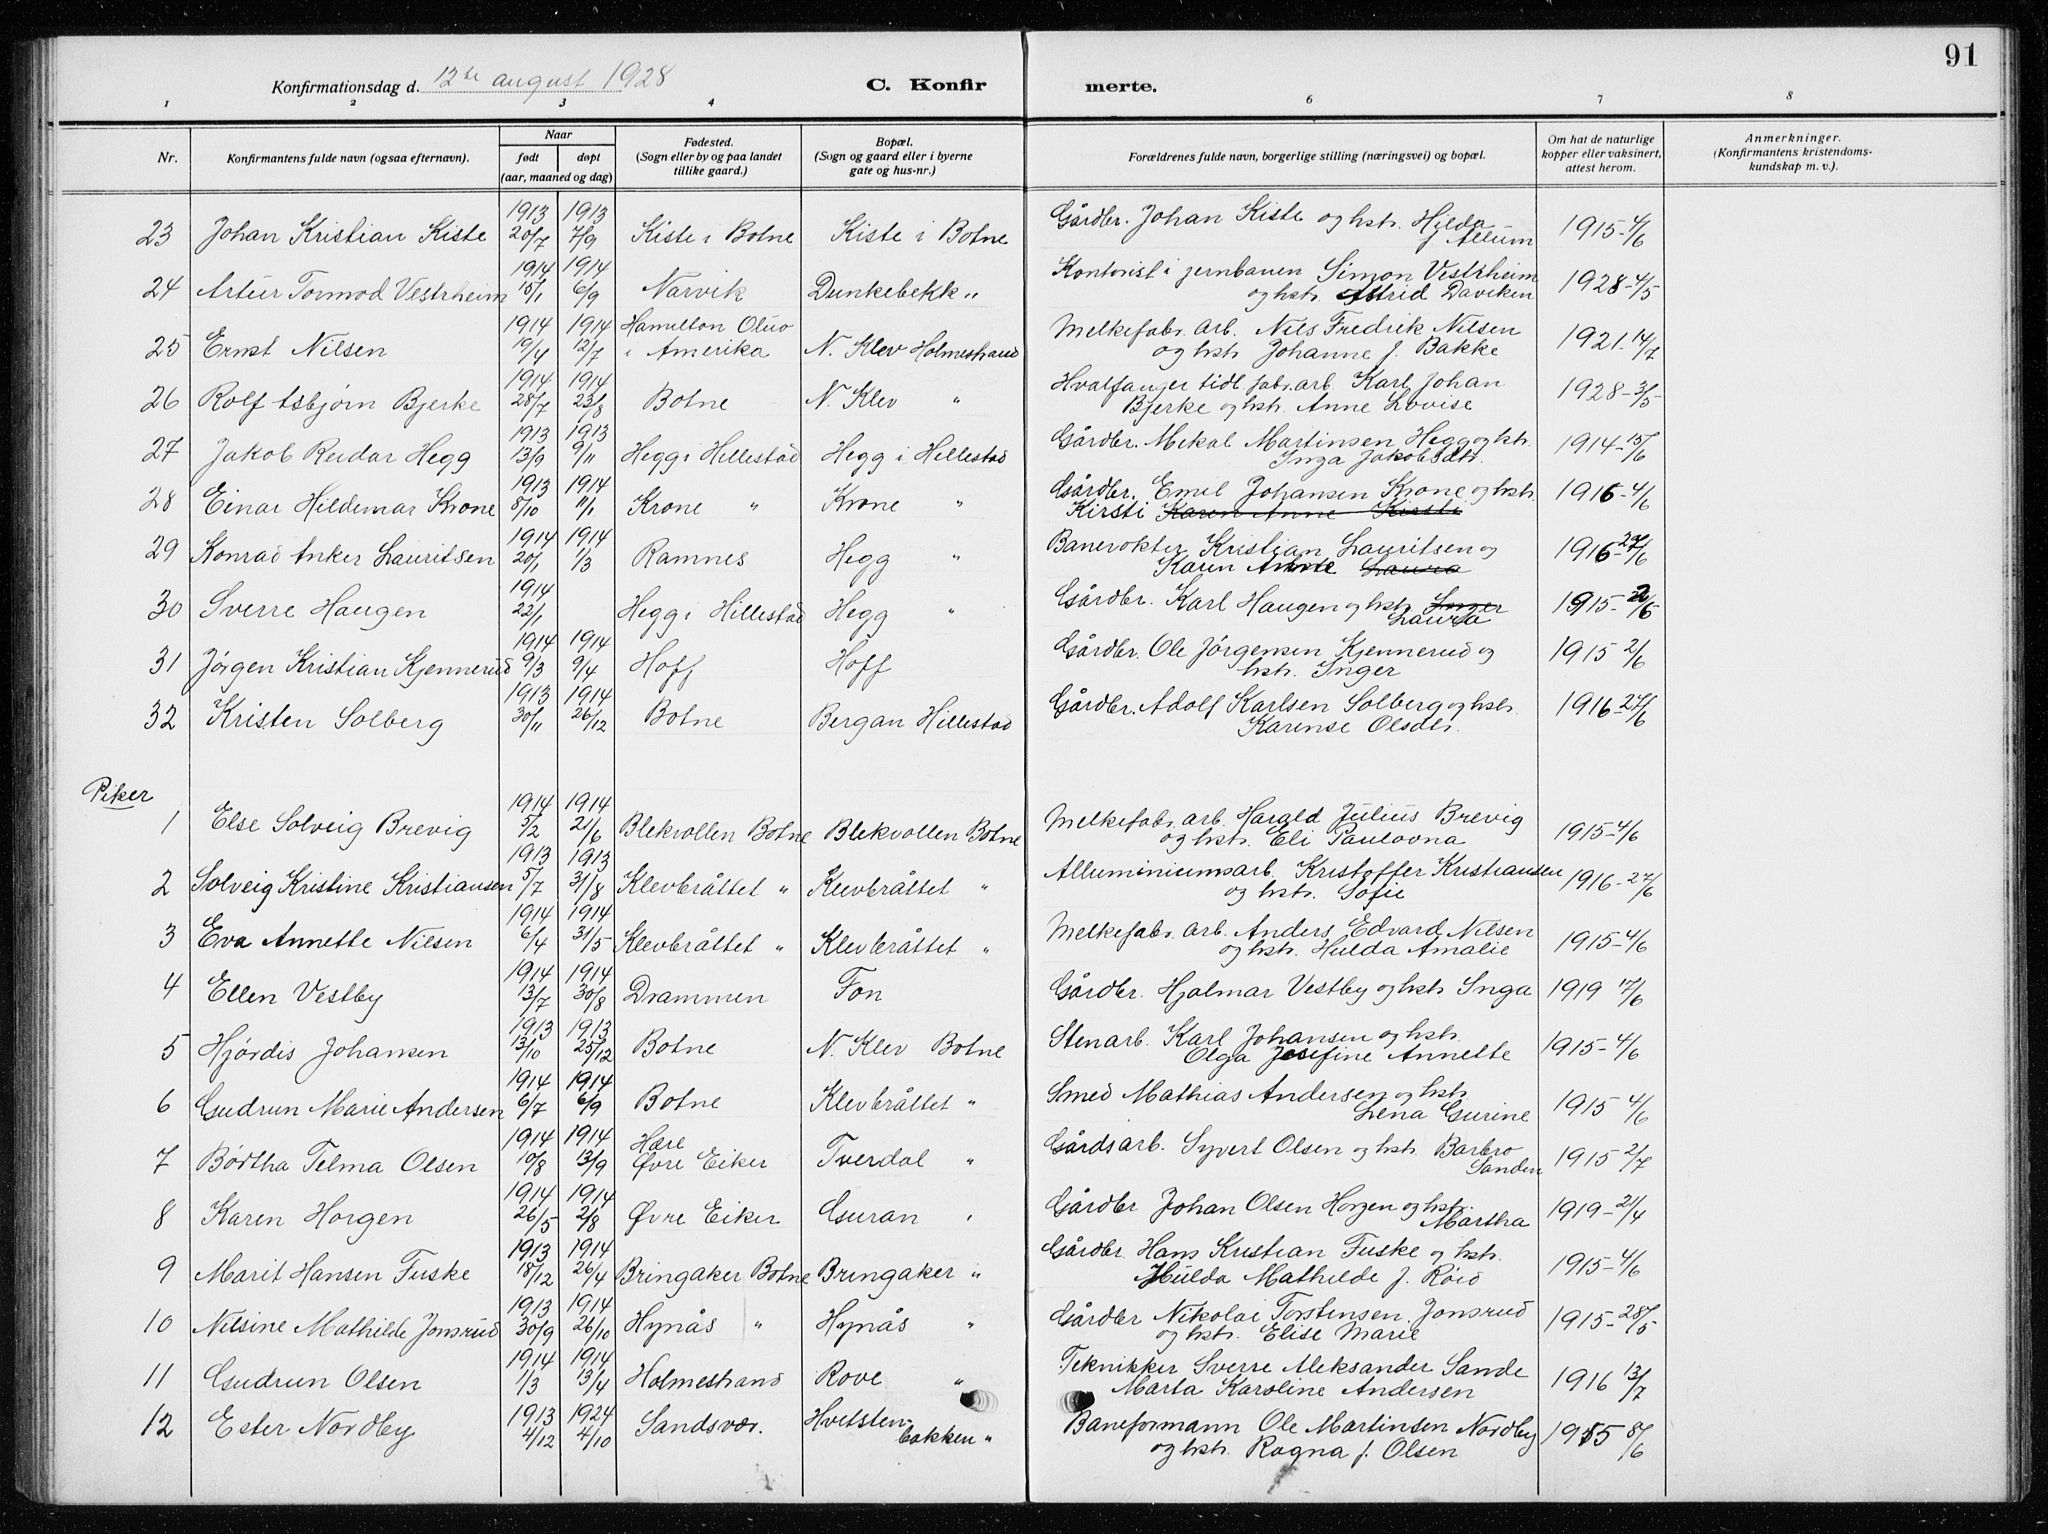 91
Konfirmationsdag d. 12te august 1928 C. Konfirmerte.
1 2 3 4 5 6 7 8
Nr. Konfirmantens fulde navn (ogsaa efternavn). Naar født døpt (aar, maaned og dag) Fødested. (Sogn eller by og paa landet tillike gaard.) Bopæl. (Sogn og gaard eller i byerne gate og hus-nr.) Forældrenes fulde navn, borgerlige stilling (næringsvei) og bopæl. Om hat de naturlige kopper eller vaksinert, attest herom. Anmerkninger. (Konfirmantens kristendomskundskap m. v.).
23 Johan Kristian Kiste 1913 20/7 1913 7/9 Kiste i Botne Kiste i Botne Gårdbr. Johan Kiste og hstr. Hilda f Allum 1915-4/6
24 Artur Tormod Vestrheim 1914 15/1 1914 6/9 Narvik Dunkebekk " Kontorist i jernbanen Simon Vestrheim og hstr. Astrid Daviken 1928-4/5
25 Ernst Nilsen 1914 19/4 1914 12/7 Hamilton i Amerika N. Klev Holmestrand Melkefabr. arb. Nils Fredrik Nilsen og hstr. Johanne f. Bakke 1921-14/7
26 Rolf Asbjørn Bjerke 1914 28/7 1914 23/8 Botne N. Klev " Hvalfanger tidl. fabr. arb. Karl Johan Bjerke og hstr. Anne Lovise 1928-3/5
27 Jakob Reidar Hegg 1913 13/9 1913 9/11 Hegg i Hillestad Hegg i Hillestad Gårdbr. Mekal Martinsen Hegg og hstr. Inga Jakobsdtr. 1914-15/6
28 Einar Hildemar Krone 1913 8/10 1914 11/1 Krone " Krone " Gårdbr. Emil Johansen Krone og hstr. Kirsti Karen Anne Kirsti 1916-4/6
29 Konrad Anker Lauritsen 1914 20/1 1914 1/3 Ramnes Hegg " Banevokter Kristian Lauritsen og Karen Anne Laura 1916-27/6
30 Sverre Haugen 1914 22/1 Hegg i Hillestad Hegg " Gårdbr. Karl Haugen og hstr. Inger Laura 1915-2/6
31 Jørgen Kristian Kjennerud 1914 9/3 1914 9/4 Hoff Hoff Gårdbr. Ole Jørgensen Kjennerud og hstr. Inger 1915 2/6
32 Kristen Solberg 1913 30/11 1914 26/12 Botne Bergan Hillestad Gårdbr. Adolf Karlsen Solberg og hstr. Karense Olsdtr. 1916-27/6
Piker
1 Else Solveig Brevig 1914 5/2 1914 21/6 Blekvollen Botne Blekvollen Botne Melkefabr. arb. Harald Julius Brevig og hstr. Eli Paulovna 1915-4/6
2 Solveig Kristine Kristiansen 1913 5/7 1913 31/8 Klevbråttet " Klevbråttet " Alluminiumsarb. Kristoffer Kristiansen og hstr. Sofie 1916-27/6
3 Eva Annette Nilsen 1914 6/4 1914 31/5 Klevbråttet " Klevbråttet " Melkefabr. arb. Anders Edvard Nilsen og hstr. Hulda Amalie 1915-4/6
4 Ellen Vestby 1914 13/7 1914 30/8 Drammen Fon Gårdbr. Hjalmar Vestby og hstr. Inga 1919 17/6
5 Hjørdis Johansen 1913 13/10 1913 25/12 Botne N. Klev Botne Stenarb. Karl Johansen og hstr. Olga Josefine Annette 1915-4/6
6 Gudrun Marie Andersen 1914 6/7 1914 6/9 Botne Klevbråttet " Smed Mathias Andersen og hstr. Lena Gurine 1915 4/6
7 Børtha Telma Olsen 1914 10/8 1914 13/9 Hære Øvre Eiker Tverdal " Gårdsarb. Syvert Olsen og hstr. Barbro Sanden 1915 2/7
8 Karen Horgen 1914 26/5 1914 2/8 Øvre Eiker Guran " Gårdbr Johan Olsen Horgen og hstr. Martha 1919-21/4
9 Marit Hansen Fuske 1913 18/12 1914 26/4 Bringaker Botne Bringaker " Gårdbr. Hans Kristian Fuske og hstr. Hulda Mathilde f. Røed 1915-4/6
10 Nilsine Mathilde Jonsrud 1913 30/9 1914 26/10 Hynås " Hynås " Gårdbr Nikolai Torstensen Jonsrud og hstr. Elise Marie 1915-28/5
11 Gudrun Olsen 1914 1/3 1914 13/4 Holmestrand Rove " Teknikker Sverre Aleksander Sande Marta Karoline Andersen 1916 13/7
12 Ester Nordby 1913 4/12 1924 4/10 Sandsvær. Hvitstenbakken " Baneformann Ole Martinsen Nordby og hstr. Ragna f. Olsen 1915 8/6